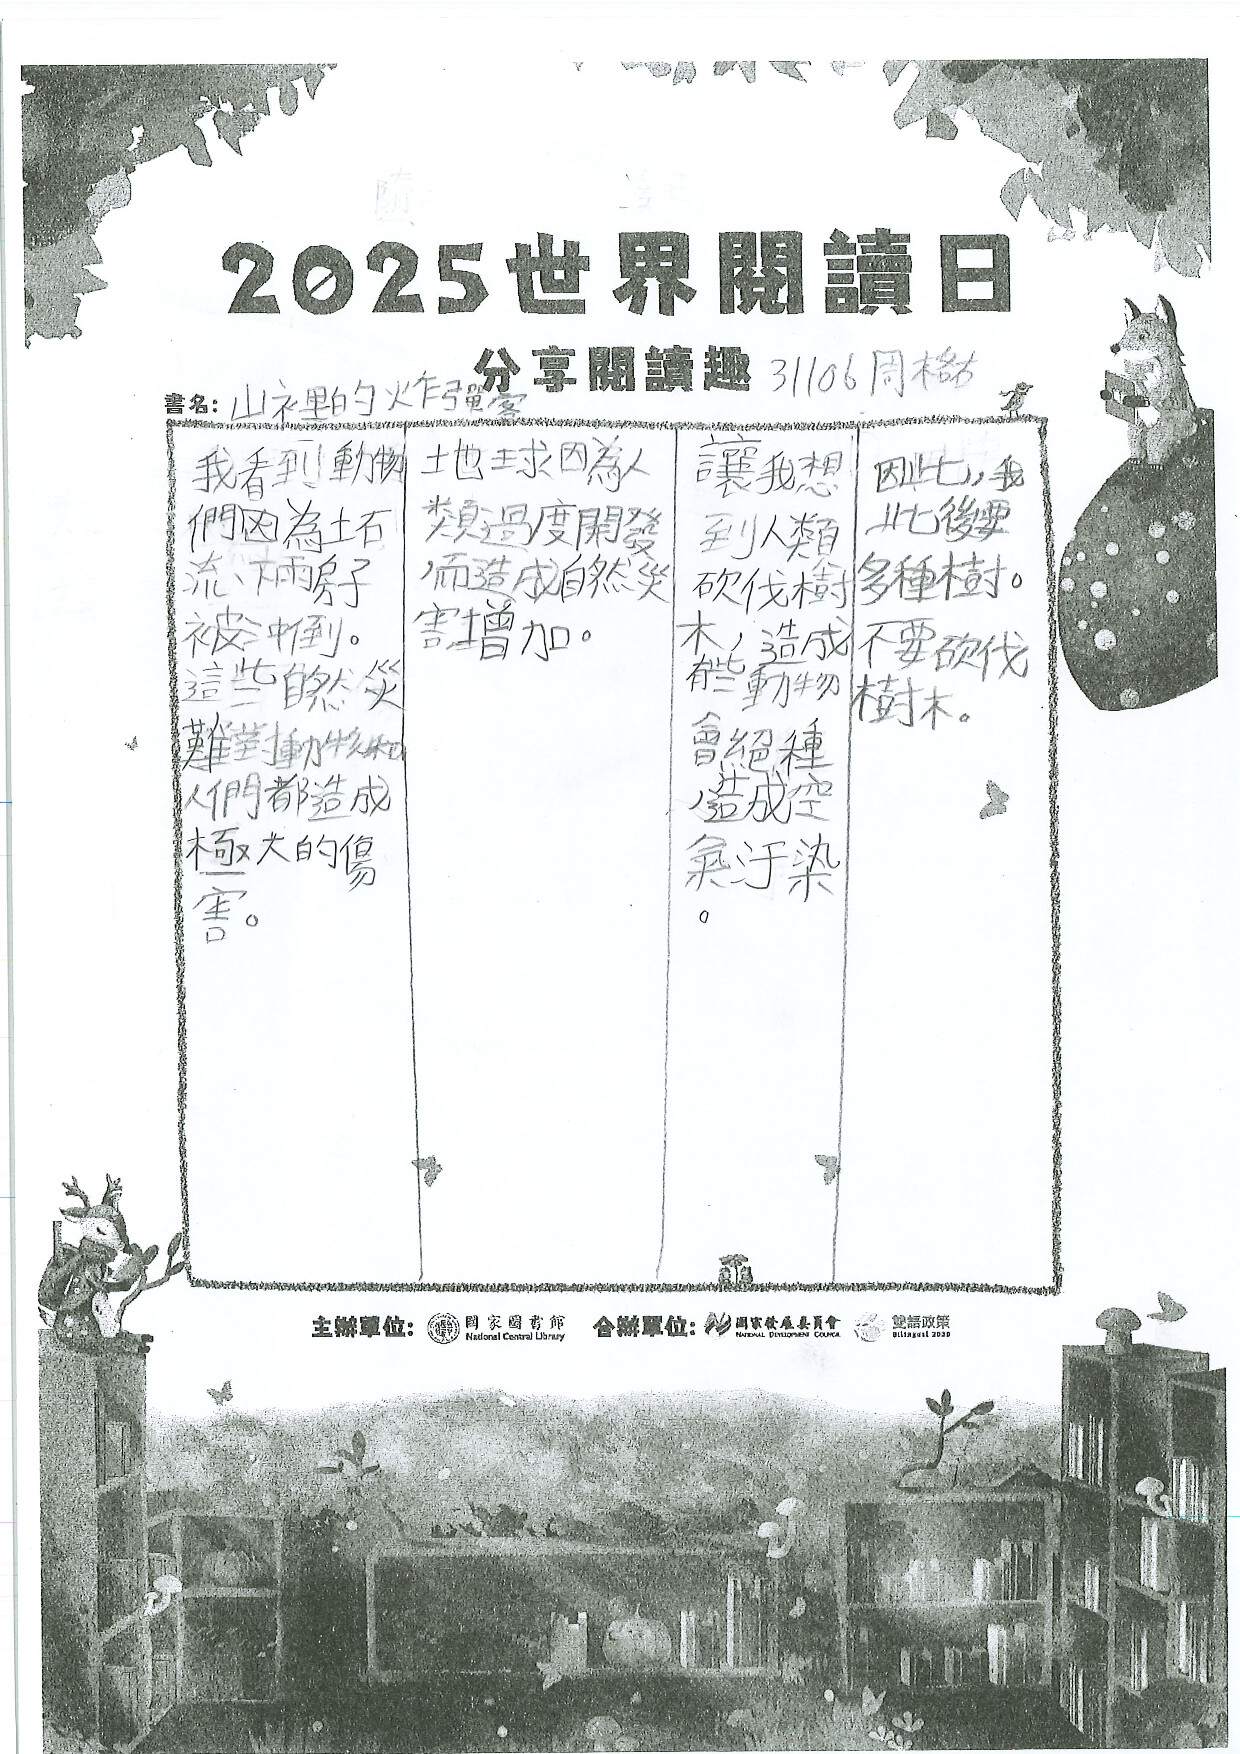 2025世界閱讀日
分享閱讀趣
31106周
書名:山裡的炸彈客
我看到動物
們因為土石
流、下雨房子
被沖倒。
這些自然災
難對動物和
人們都造成
極大的傷
害。
地球因為人
類過度開發
,而造成自然災
害增加。
讓我想
到人類
砍伐樹
木,造成
有些動物
會絕種
,造成空
氣汙染
。
因此,我
此後要
多種樹。
不要砍伐
樹木。
主辦單位: 國家圖書館 National Central Library 合辦單位: 國家發展委員會 NATIONAL DEVELOPMENT COUNCIL 雙語政策 Bilingual 2030